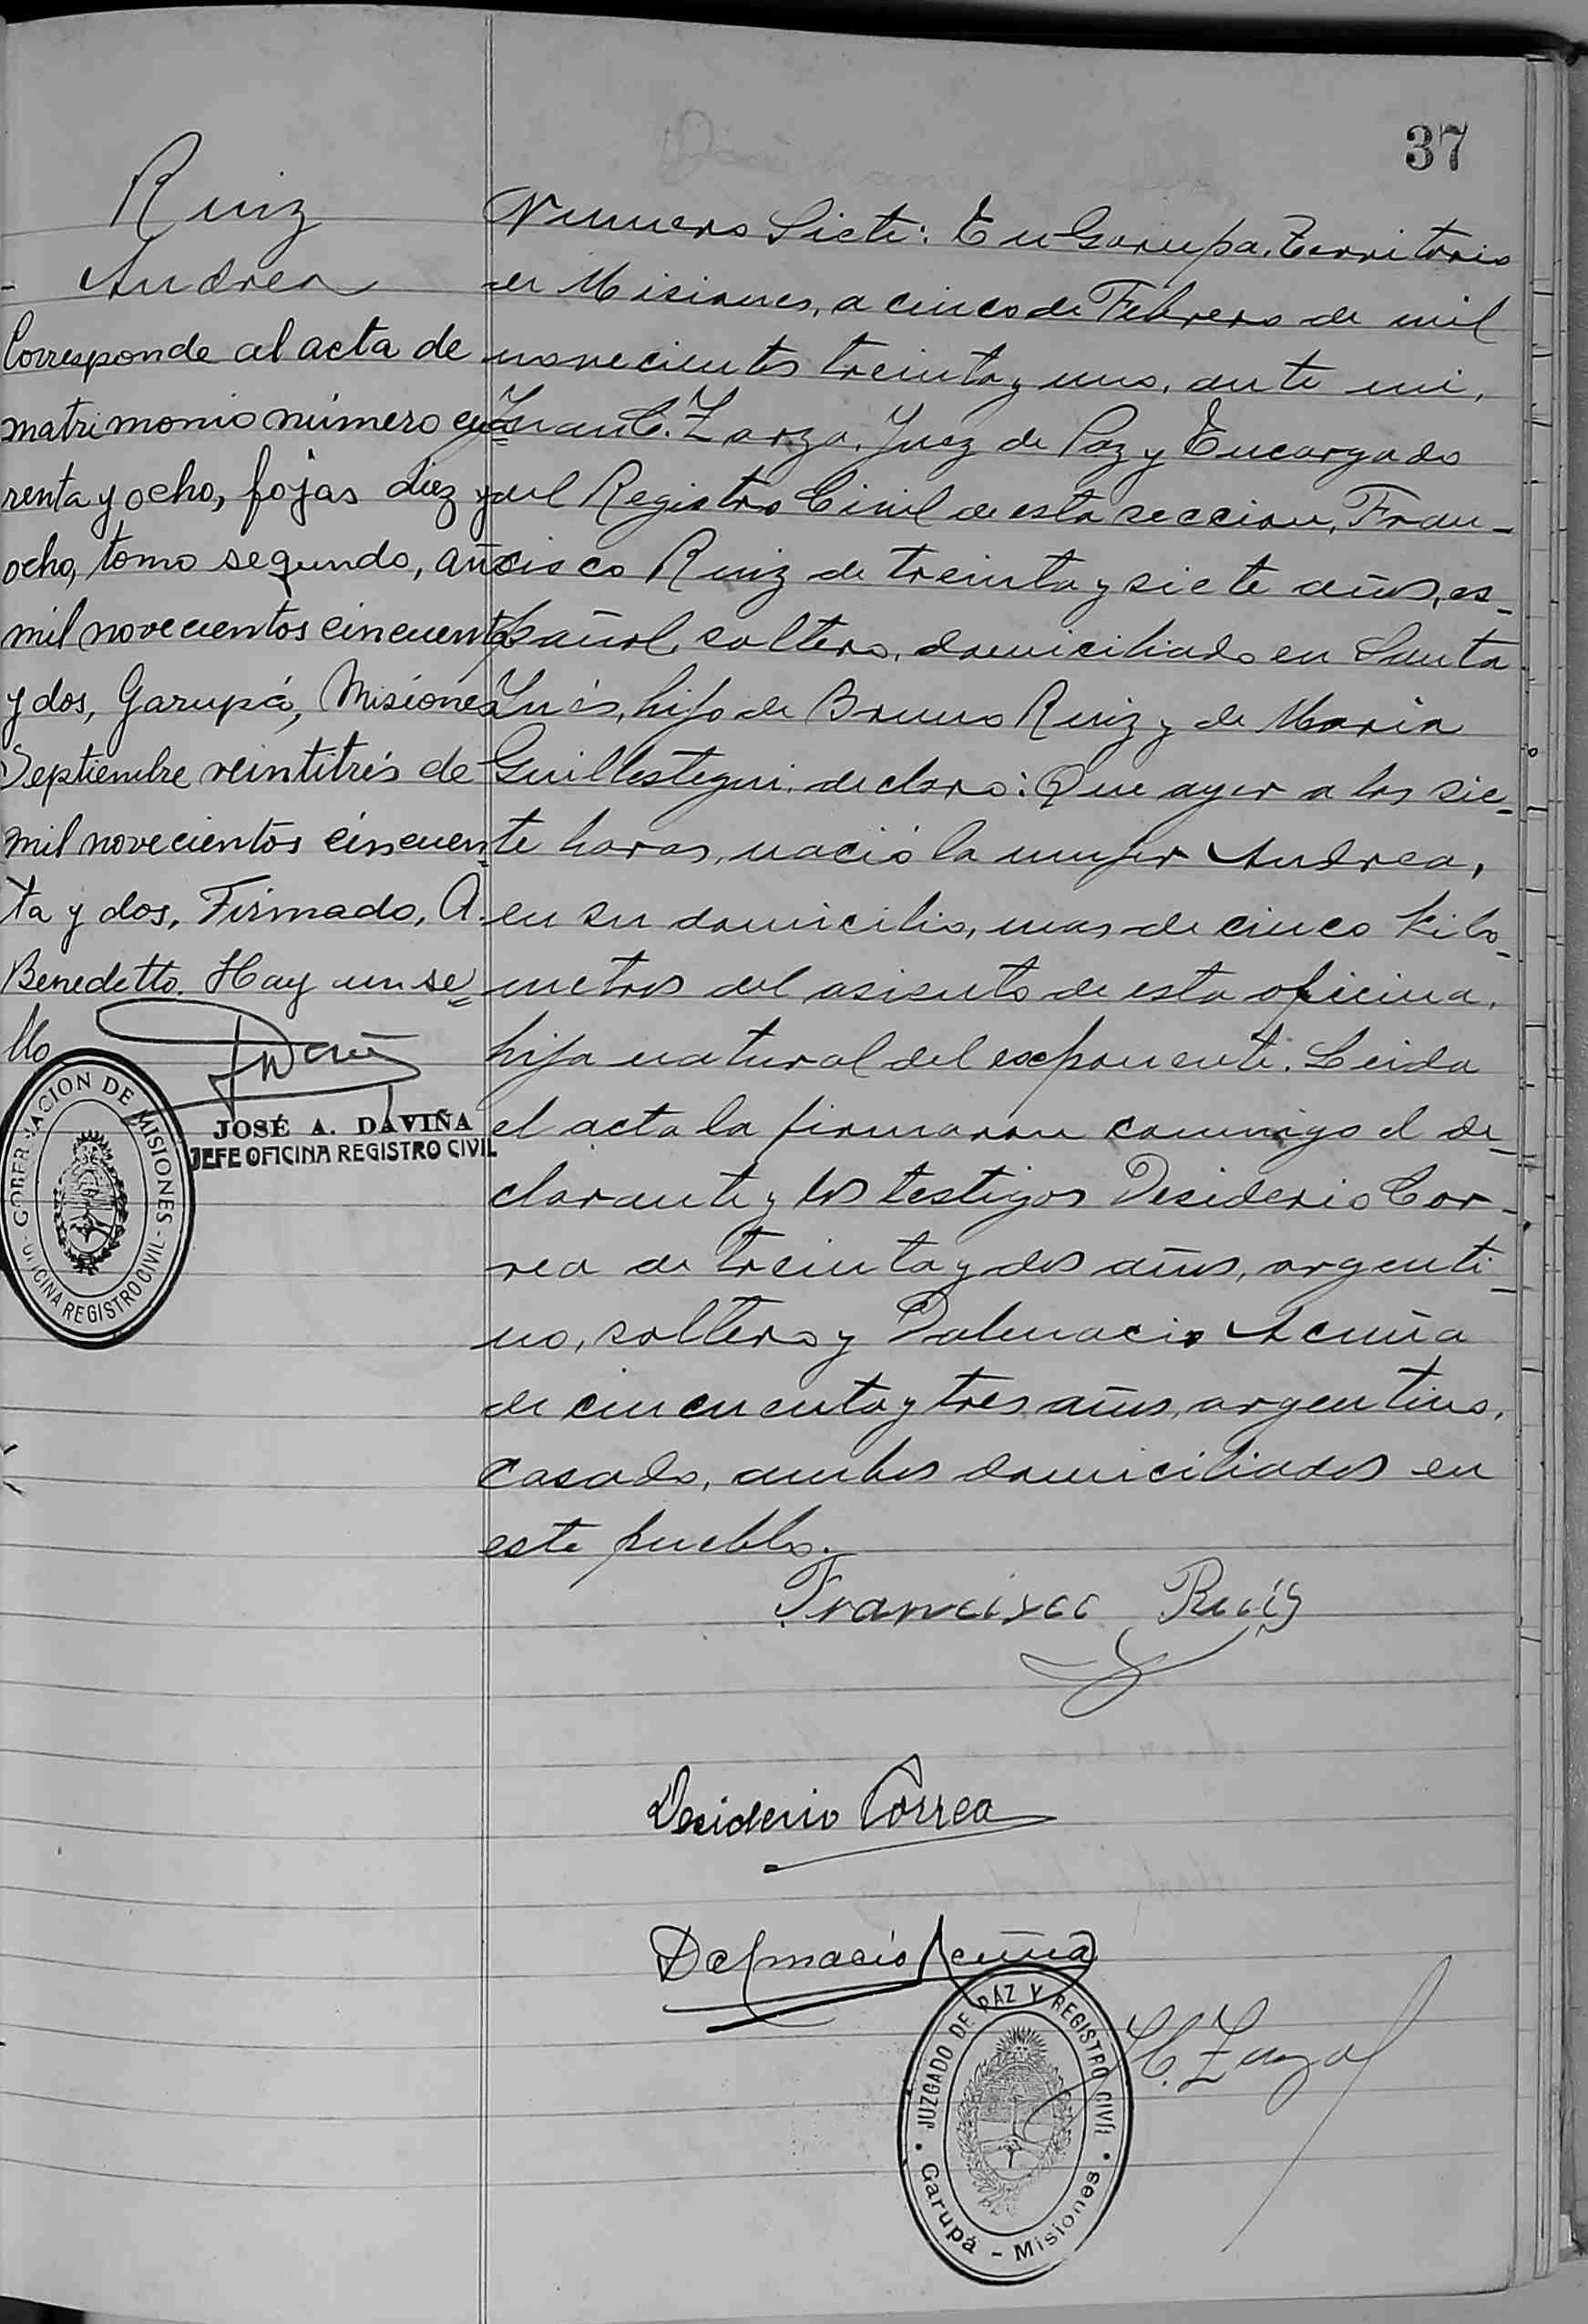 37
Ruiz
Andrea
Corresponde al acta de
matrimonio número cua=
renta y ocho, fojas diez y
ocho, tomo segundo, año
mil novecientos cincuenta
y dos, Garupá, Misiones
Septiembre veintitrés de
mil novecientos cincuen=
ta y dos, Firmado, A.
Benedetto. Hay un se=
llo
JOSÉ A. DAVIÑA
JEFE OFICINA REGISTRO CIVIL
GOBERNACION DE MISIONES
- OFICINA REGISTRO CIVIL -
Numero Siete: En Garupa, Territorio
de Misiones, a cinco de Febrero de mil
novecientos treinta y uno, ante mi,
Juan C. Zarza, Juez de Paz y Encargado
del Registro Civil de esta seccion, Fran-
cisco Ruiz de treinta y siete años, es-
pañol, soltero, domiciliado en Santa
Inés, hijo de Bruno Ruiz y de Maria
Guillestegui, declaro: Que ayer a las sie-
te horas, nació la mujer Andrea,
en su domicilio, mas de cinco kilo-
metros del asiento de esta oficina,
hija natural del exponente. Leida
el acta la firmaron conmigo el de-
clarante y los testigos Desiderio Cor-
rea de treinta y dos años, argenti-
no, soltero y Dalmacio Acuña
de cincuenta y tres años, argentino,
casado, ambos domiciliados en
este pueblo.
Francisco Ruiz
Desiderio Correa
Dalmacio Acuña
JC. Zarza
JUZGADO DE PAZ Y REGISTRO CIVIL
Garupá - Misiones